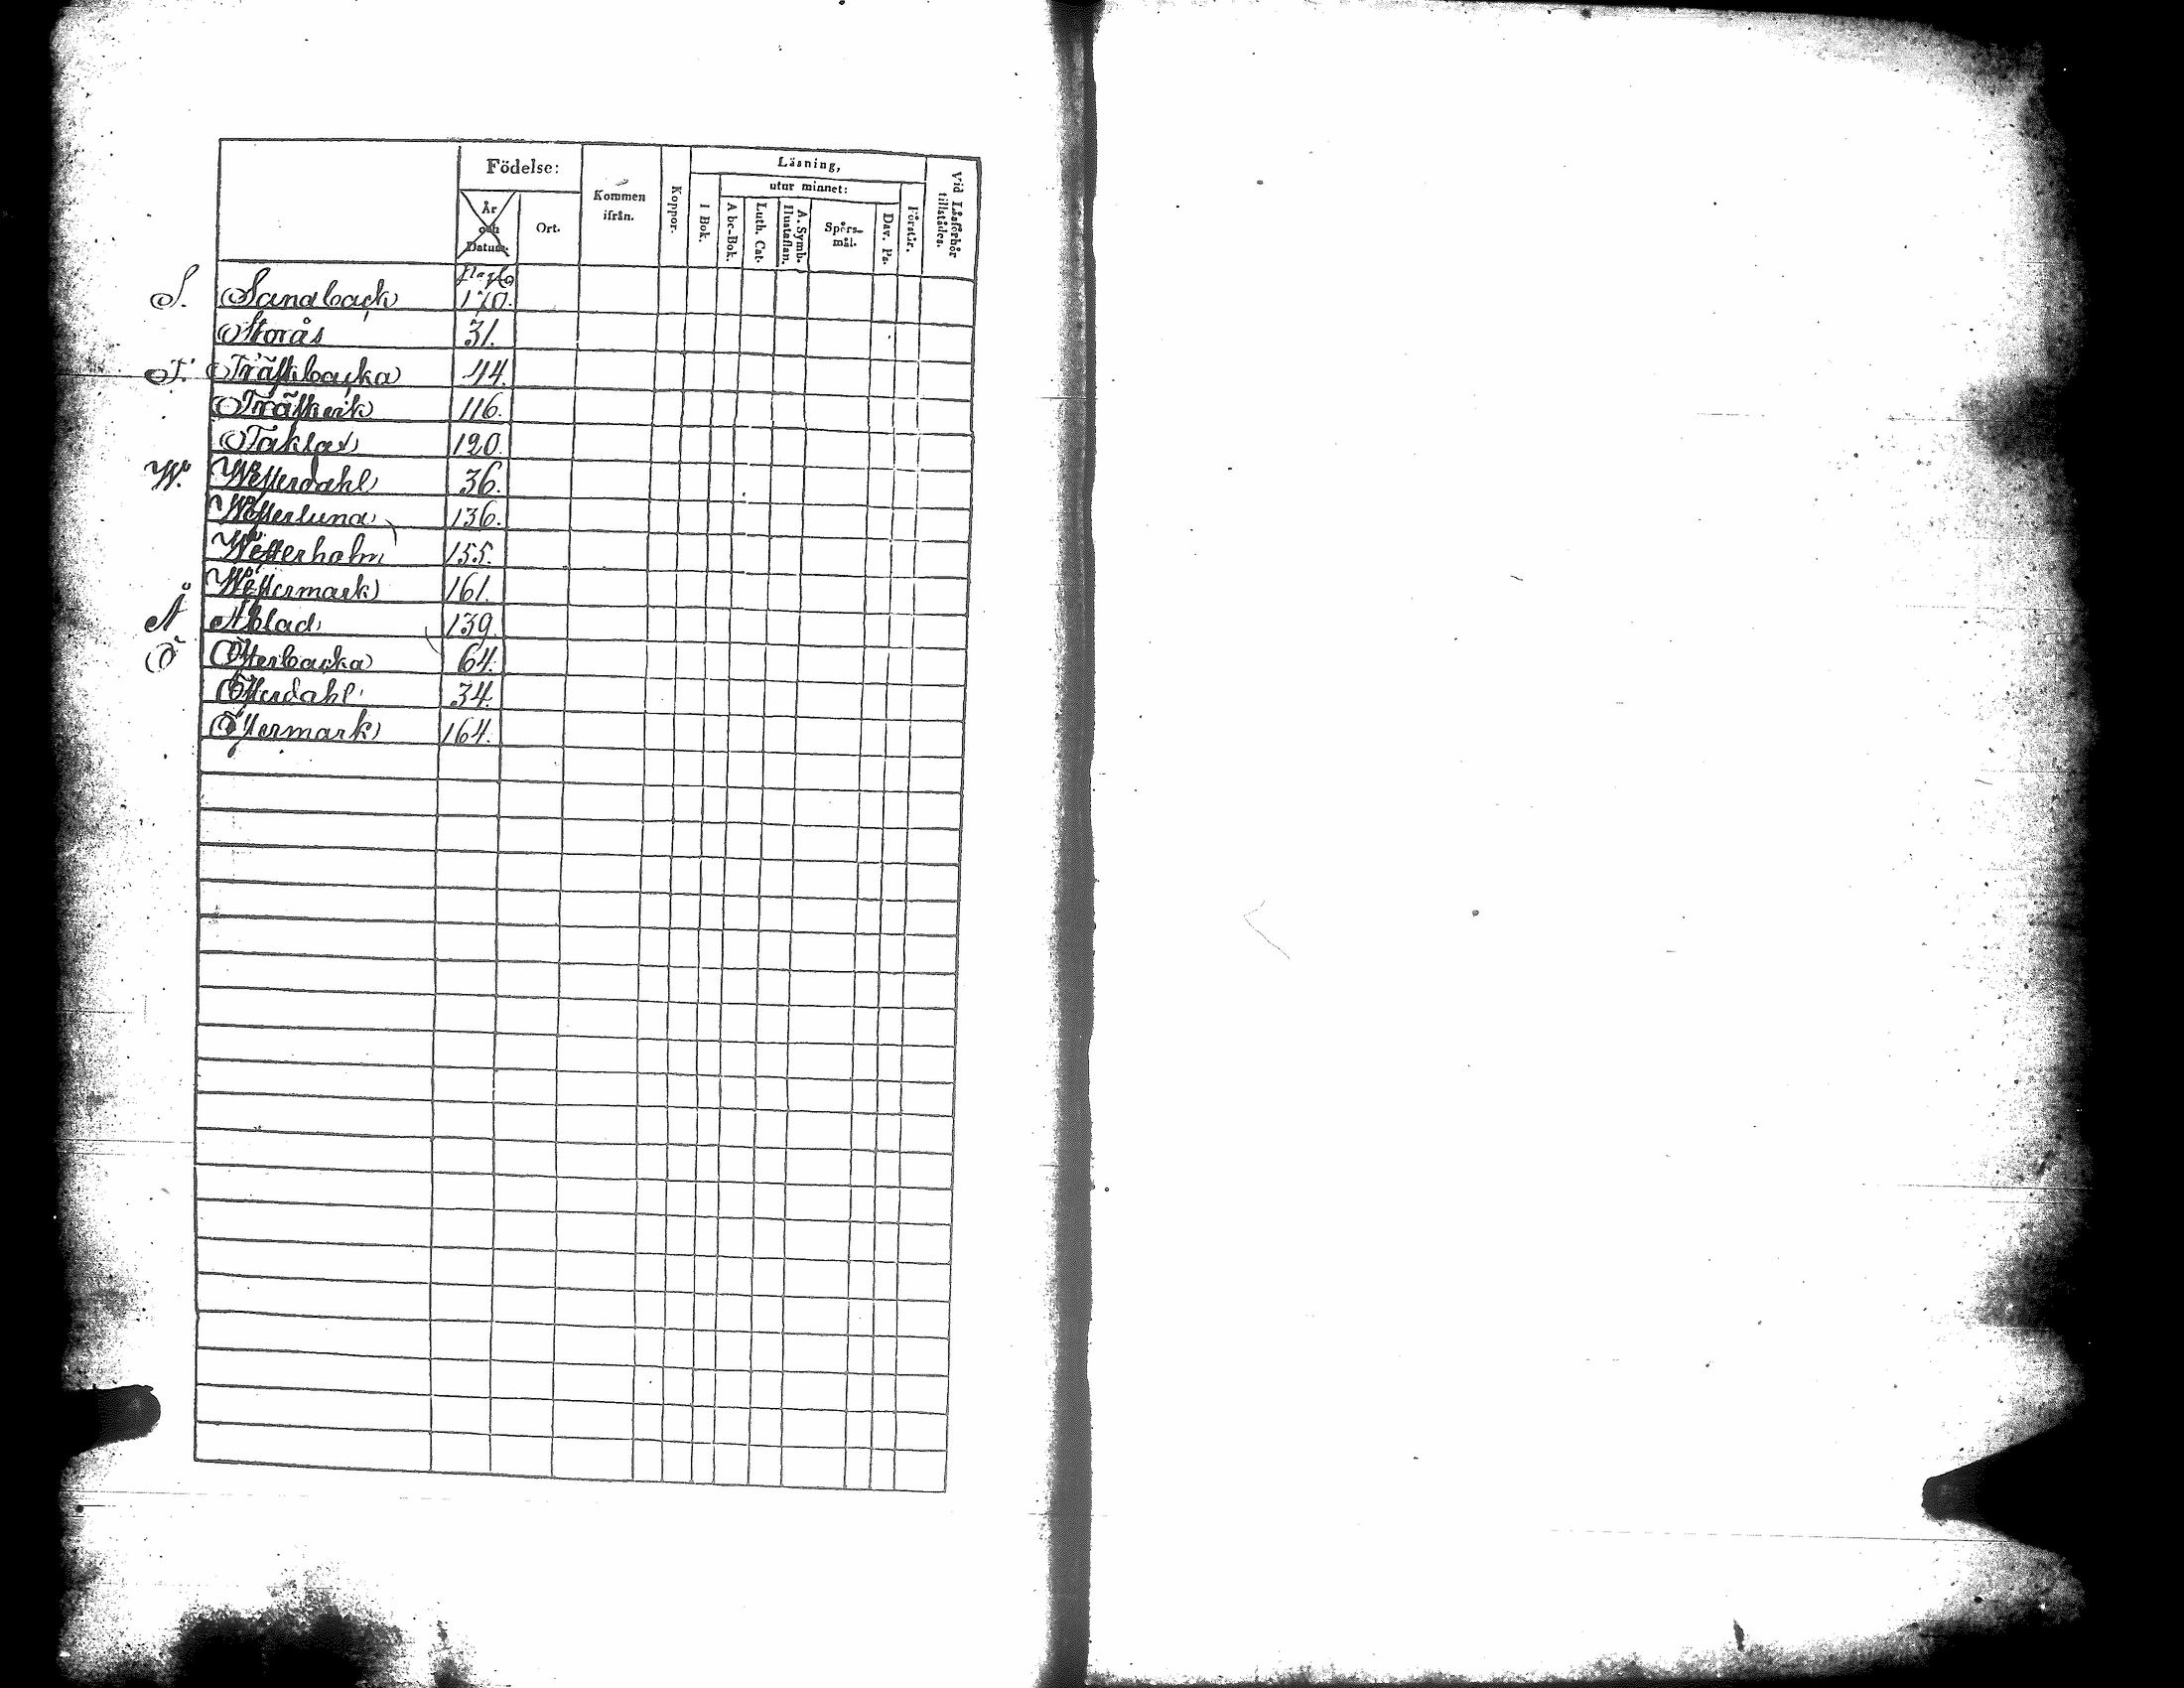 Födelse:
År och Datum.
Ort.
Kommen ifrån.
Koppor.
Läsning,
I Bok.
utur minnet:
A bc-Bok.
Luth. Cat.
A. Symb. Hustaflan.
Spörs-mål.
Dav. Ps.
Förstår.
Vid Läsförhör tillstädes.
S. Sandback 170.
Storås 31.
T. Träskbacka 44.
Träskvik 116.
Taklax 120.
W. Westerdahl 36.
Westerlund 136.
Westerholm 155.
Westermark 161.
Å Åblad 139.
Ö Österbacka 64.
Österdahl 34.
Östermark 164.